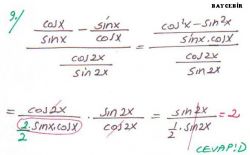 BAYCEBİR
9.) (cosx/sinx - sinx/cosx) / (cos2x/sin2x) = ((cos²x - sin²x)/(sinx.cosx)) / (cos2x/sin2x)
= cos2x/((2/2).sinx.cosx) . sin2x/cos2x = sin2x/((1/2).sin2x) = 2
CEVAP: D